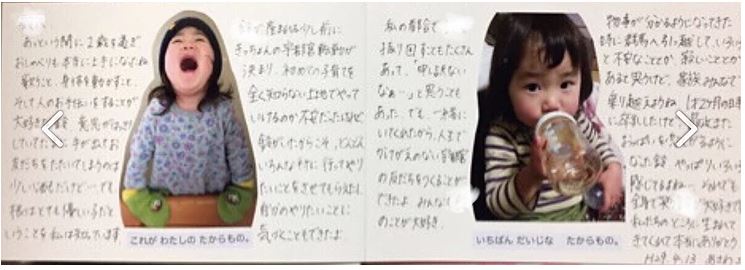 あっという間に2歳を過ぎ
おしゃべりも本当に上手になったね
歌うこと、身体を動かすこと、
そして人のお手伝いをすることが
大好きな
していてたまに手が出てお
友だちをたたいてしまうのは
少し心配だけど…でも
根はとても優しい子だと
いうことを私は知っています
これが わたしの たからもの。
が産まれる少し前に
きっちょんの宇都宮転勤が
決まり、初めての子育てを
全く知らない土地でやって
いけるのか不安だったけど
がいたからこそ、どんどん
いろんな所に行ってやり
たいことをさせてもらえたし
自分のやりたいことに
気づくこともできたよ。
私の都合で
振り回すこともたくさん
あって、「申し訳ない
なぁ…」と思うことも
あった。でも、一緒に
いてくれたから、人まで
かけがえのない宇都宮
の友だちをつくることが
できたよ。みんな
のことが大好き。
いちばん だいじな たからもの。
物事が分かるようになってきた
時に群馬へ引っ越して、いろいろ
と不安なことや、寂しいことが
あると思うけど、家族みんなで
乗り越えようね。1才2ヶ月の時
に卒乳したけど、また
おっぱいを るように
なった やっぱりいろいろ
感じてるよね。
大好き
私たちのところに生まれて
きてくれて本当にありがとう
H29.4.13